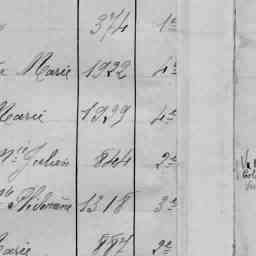 374 1º
Marie 1922 4º
Marie 1939 4º
Mce Julien 844 2º
Philomène 1318 3º
Marie 887 2º